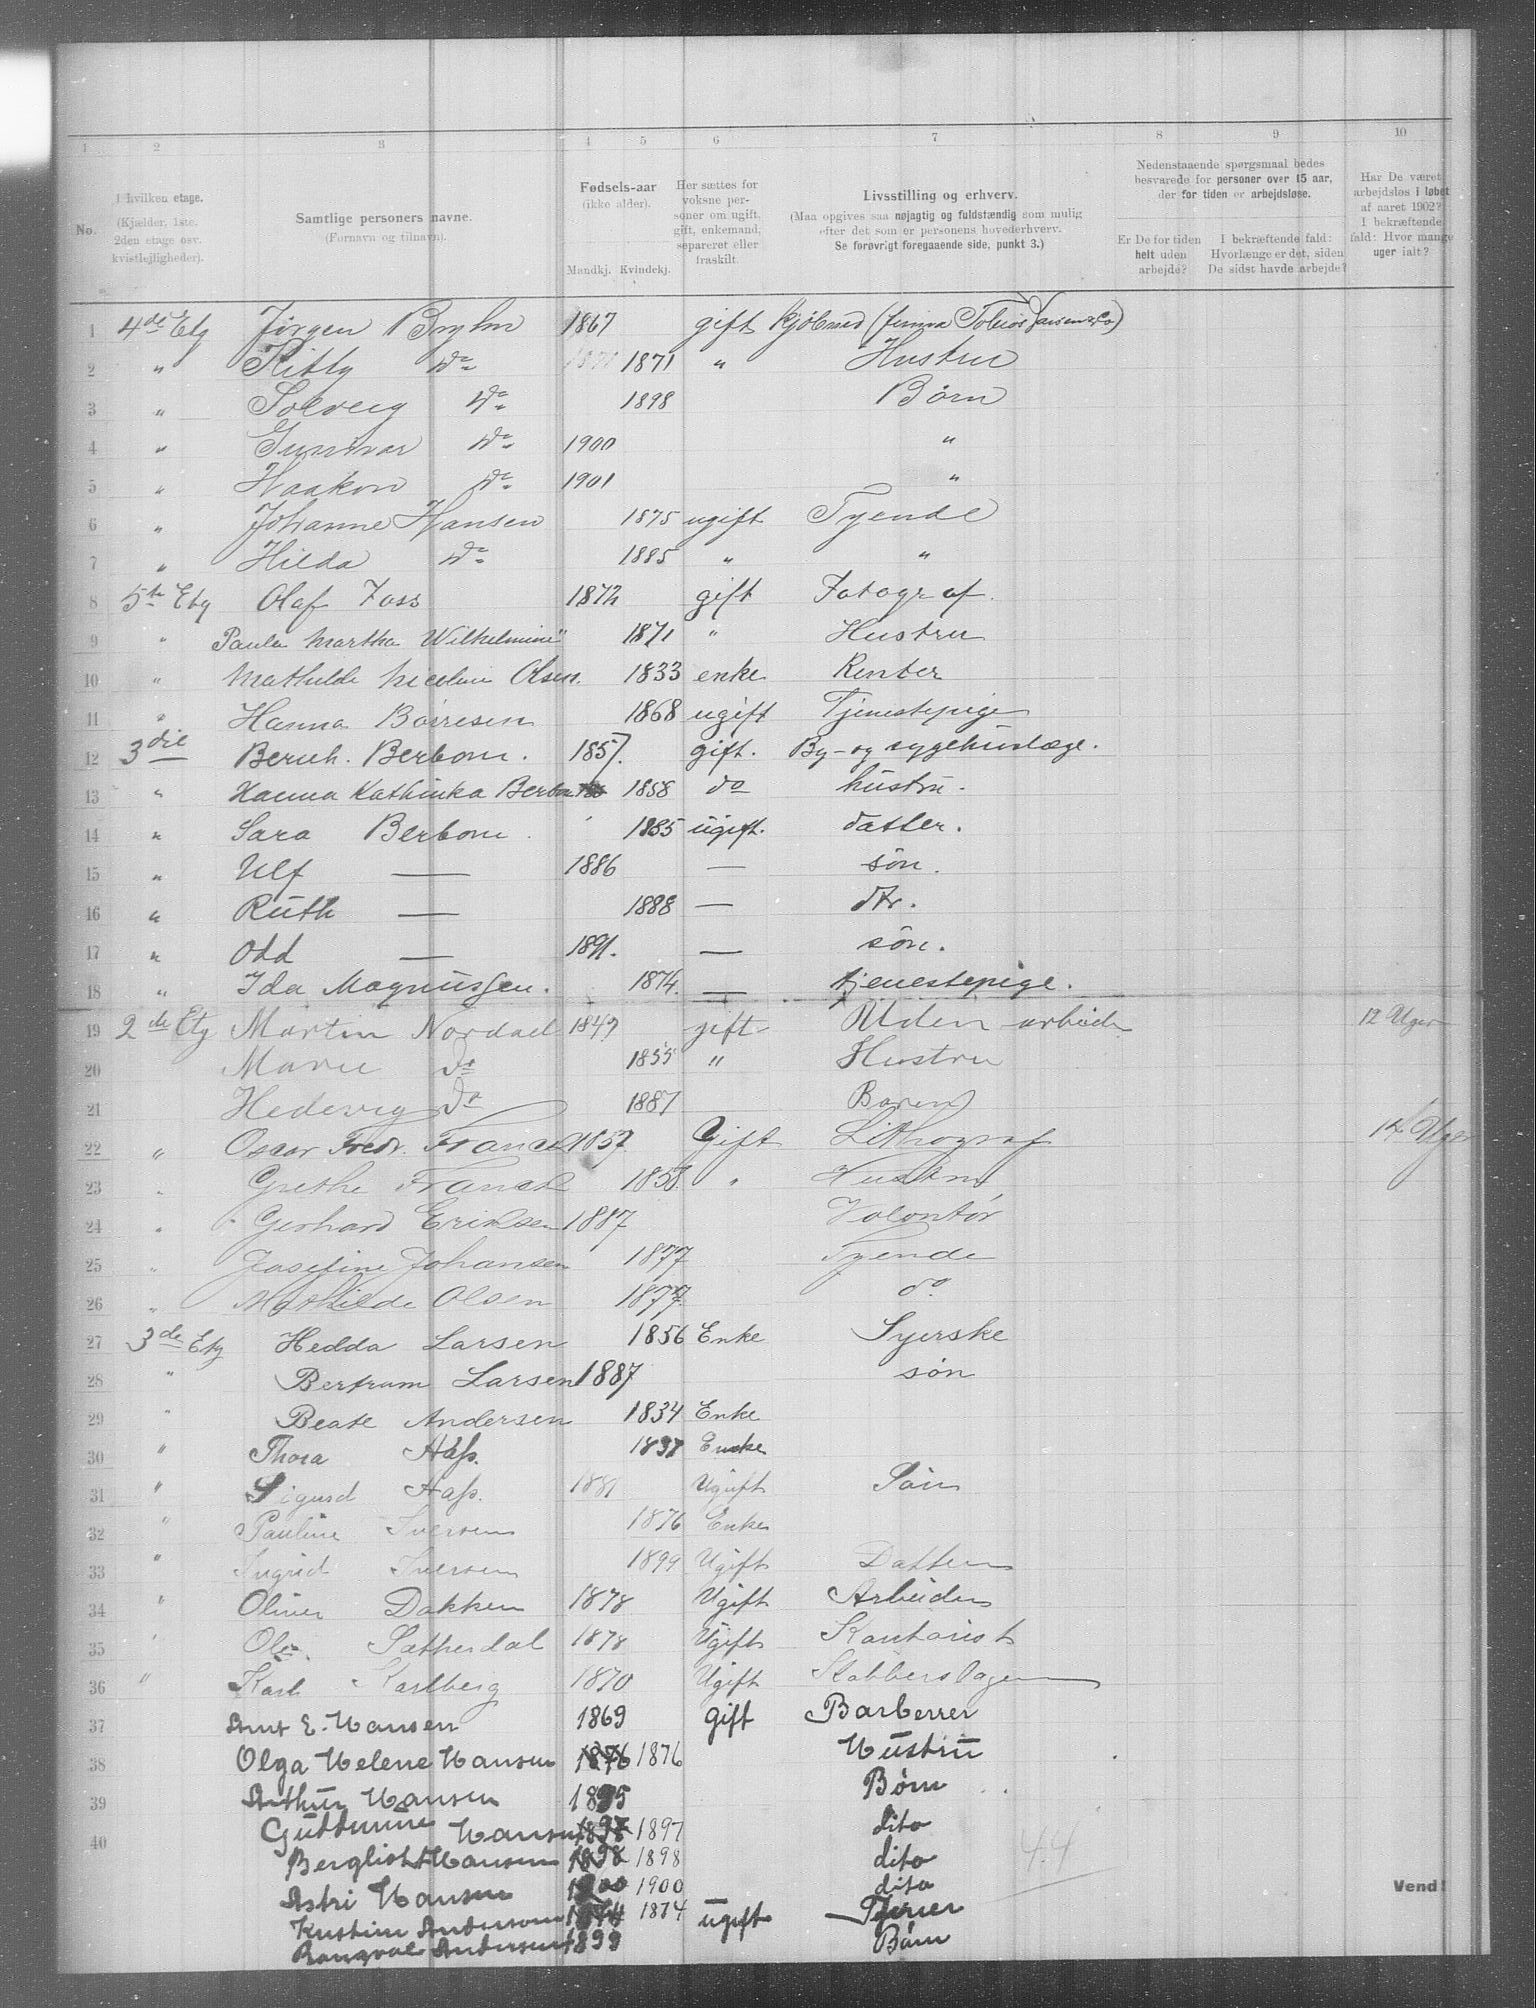 1 2 3 4 5 6 7 8 9 10
No.
I hvilken etage.
(Kjælder, 1ste.
2den etage osv.
kvistlejligheder).
Samtlige personers navne.
(Fornavn og tilnavn).
Fødsels-aar
(ikke alder).
Mandkj. Kvindekj.
Her sættes for
voksne per-
soner om ugift,
gift, enkemand,
separeret eller
fraskilt.
Livsstilling og erhverv.
(Maa opgives saa nøjagtig og fuldstændig som mulig
efter det som er personens hovederhverv.
Se forøvrigt foregaaende side, punkt 3.)
Nedenstaaende spørgsmaal bedes
besvarede for personer over 15 aar,
der for tiden er arbejdsløse.
Er De for tiden
helt uden
arbejde?
I bekræftende fald:
Hvorlænge er det, siden
De sidst havde arbejde?
Har De været
arbejdsløs i løbet
af aaret 1902?
I bekræftende
fald: Hvor mange
uger ialt?
1 4de Etg Jørgen Bryhn 1867 gift Kjøbmd (firma Tobias Larsen & Co)
2 " Kitty do 1871 1871 " Hustru
3 " Solveig do 1898 Børn
4 " Gunnar do 1900 "
5 " Haakon do 1901 "
6 " Johanne Hansen 1875 ugift Tyende
7 " Hilda do 1885 " "
8 5te Etg Olaf Foss 1872 gift Fotograf.
9 " Paula Martha Wilhelmine " 1871 " Hustru
10 " Mathilde Nicoline Olsen. 1833 enke Renter
11 " Hanna Børresen 1868 ugift Tjenestepige
12 3die Bernh. Berbom. 1857. gift. By- og sygehuslæge.
13 " Hanna Kathinka Berbom 1858 do hustru.
14 " Sara Berbom. 1885 ugift. datter.
15 " Ulf — 1886 — søn.
16 " Ruth — 1888 — dtr.
17 " Odd — 1891. — søn.
18 " Ida Magnussen. 1874. — tjenestepige.
19 2de Etg Martin Nordad 1849 gift Uden arbeide 12 Uger
20 Marie do 1855 " Hustru
21 Hedevig do 1887 Baren
22 " Oscar Fredr. Franck 1857 Gift Lithograf 14 Uger
23 " Grethe Franck 1858. " Hustru
24 " Gerhard Eriksen 1887 Volontør
25 " Josefine Johansen 1877 Tyende
26 " Mathilde Olsen 1877. do
27 3de Etg Hedda Larsen 1856 Enke Syerske
28 " Bertram Larsen 1887 søn
29 " Beate Andersen 1834 Enke
30 " Thora Aass. 1837 Enke
31 " Sigurd Aass. 1881 Ugift Søn
32 " Pauline Iversen 1876 Enke
33 " Ingrid Iversen 1899 Ugift Datter
34 " Oliver Dokken 1878 Ugift Arbeider
35 " Ole Sætherdal 1878 Ugift Kontorist
36 " Karl Karlberg 1870 Ugift Stabberslager
37 Arnt E. Hansen 1869 gift Barberrer
38 Olga Helene Hansen 1876 1876 Hustru
39 Arthur Hansen 1895 Børn
40 Guttumine Hansen 1897 1897 dito
Bergliot Hansen 1898 1898 dito
Astri Hansen 1900 1900 dito
Kristine Anderson 1874 1874 ugift Tjener
Rangval Andersen 1899 Børn
44
Vend!